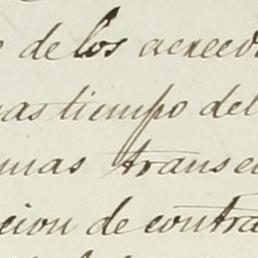 de los acreed
as tiempo del
mas trans
cion de contra